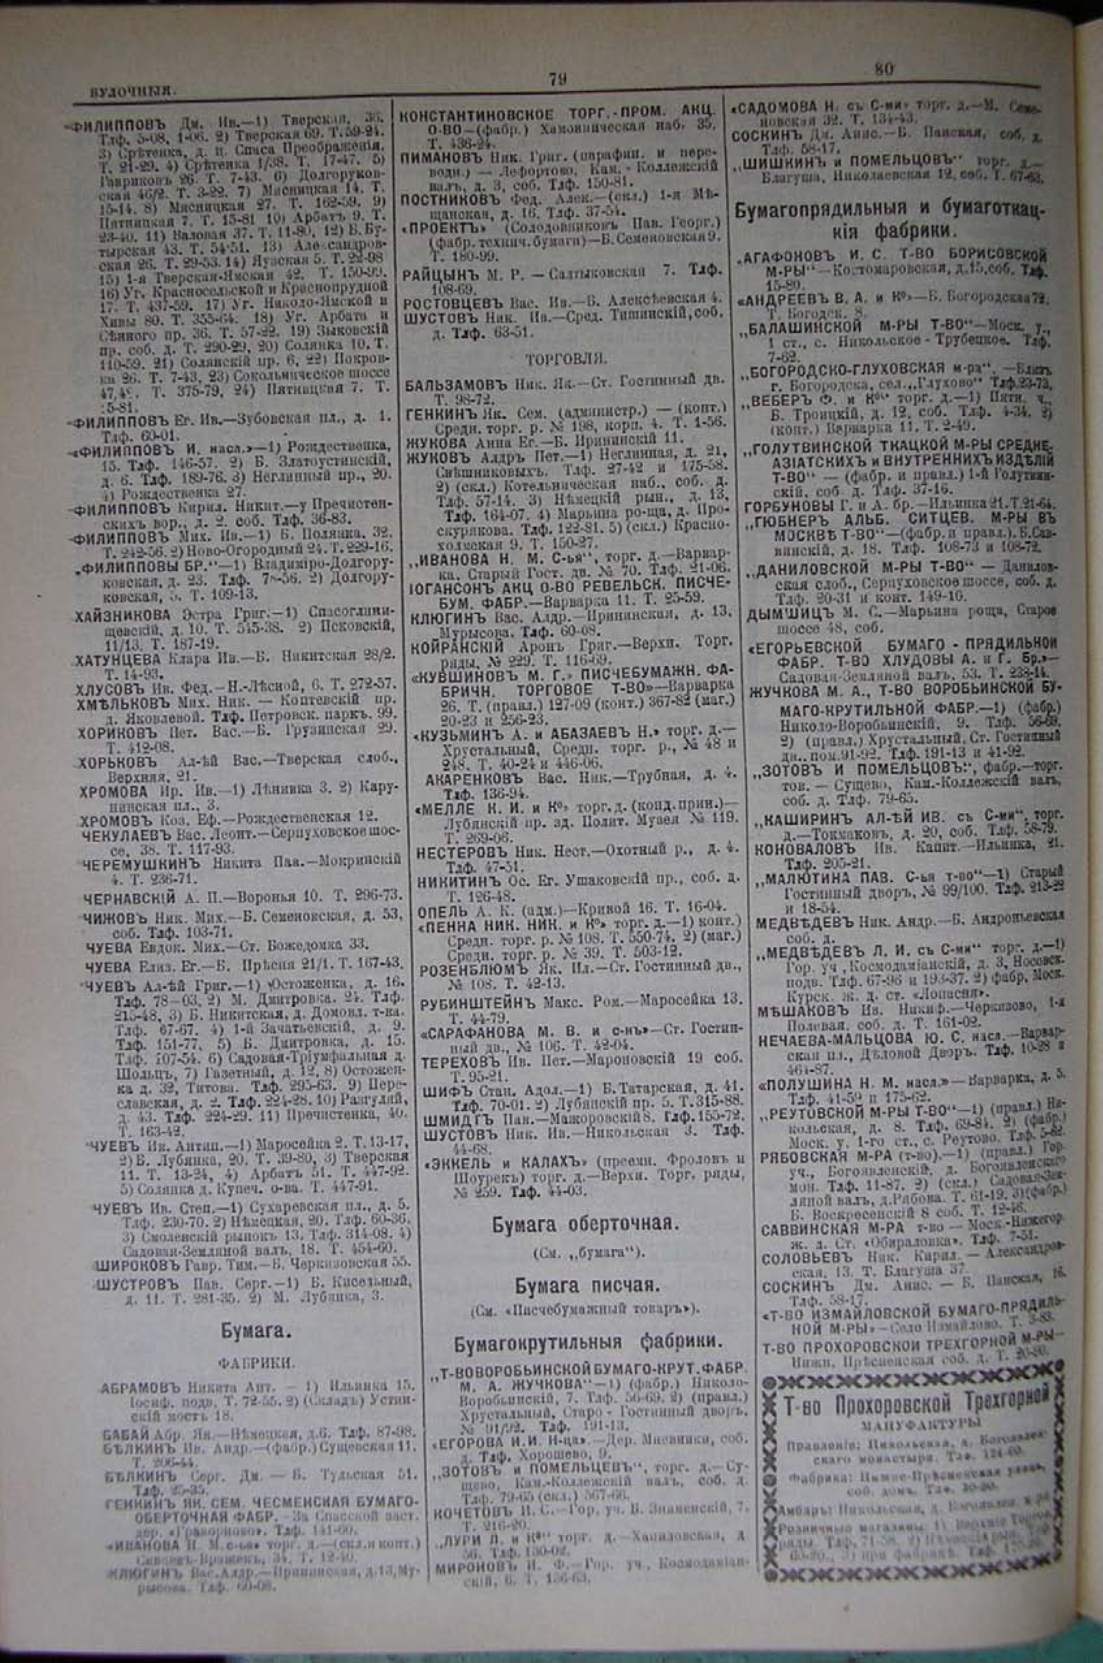 БУЛОЧНЫЯ.
79
80
ФИЛИППОВЪ Дм. Ив.—1) Тверская, 36.
Тлф. 5-08, 1-06. 2) Тверская 69. Т. 59-24.
3) Срѣтенка, д. ц. Спаса Преображенія.
Т. 21-29. 4) Срѣтенка 1/38. Т. 17-47. 5)
Гавриковъ 26. Т. 7-43. 6) Долгоруков-
ская 46/2. Т. 3-22. 7) Мясницкая 14. Т.
15-14. 8) Мясницкая 27. Т. 162-59. 9)
Пятницкая 7. Т. 15-81 10) Арбатъ 9. Т.
23-40. 11) Валовая 37. Т. 11-80. 12) Б. Бу-
тырская 43. Т. 54-51. 13) Александров-
ская 26. Т. 29-53. 14) Яузская 5. Т. 22-98
15) 1-я Тверская-Ямская 42. Т. 150-99.
16) Уг. Красносельской и Краснопрудной
17. Т. 437-59. 17) Уг. Николо-Ямской и
Хивы 80. Т. 355-64. 18) Уг. Арбата и
Сѣннoго пр. 36. Т. 57-22. 19) Зыковскій
пр. соб. д. Т. 290-29, 20) Солянка 10. Т.
110-59. 21) Солянскій пр. 6, 22) Покров-
ка 26. Т. 7-43, 23) Сокольническое шоссе
Т. 375-79, 24) Пятницкая 7. Т.
15-81.
ФИЛИППОВЪ Ег. Ив.—Зубовская пл., д. 1.
Тлф. 60-01.
«ФИЛИППОВЪ И. насл.»—1) Рождественка,
15. Тлф. 146-57. 2) Б. Златоустинскій,
д. 6. Тлф. 189-76. 3) Неглинный пр., 20.
4) Рождественка 27.
ФИЛИППОВЪ Кирил. Никит.—у Пречистен-
скихъ вор., д. 2. соб. Тлф. 36-83.
ФИЛИППОВЪ Мих. Ив.—1) Б. Полянка, 32.
Т. 242-56. 2) Ново-Огородный 24. Т. 229-16.
„ФИЛИППОВЫ БР.“—1) Владиміро-Долгору-
ковская, д. 23. Тлф. 2) Долгору-
ковская, 5. Т. 109-13.
ХАЙЗНИКОВА Эстра Григ.—1) Спасоглини-
щевскій, д. 10. Т. 545-38. 2) Псковскій,
11/13. Т. 187-19.
ХАТУНЦЕВА Клара Ив.—Б. Никитская 28/2.
Т. 14-93.
ХЛУСОВЪ Ив. Фед.—Н.-Лѣсной, 6. Т. 272-57.
ХМѢЛЬКОВЪ Мих. Ник. — Коптевскій пр.
д. Яковлевой. Тлф. Петровск. паркъ. 99.
ХОРИКОВЪ Пет. Вас.—Б. Грузинская 29.
Т. 412-08.
ХОРЬКОВЪ Ал-ѣй Вас.—Тверская слоб.,
Верхняя, 21.
ХРОМОВА Ир. Ив.—1) Лѣнивка 3. 2) Кару-
нинская пл., 3.
ХРОМОВЪ Коз. Еф.—Рождественская 12.
ЧЕКУЛАЕВЪ Вас. Леонт.—Серпуховское шос-
се, 38. Т. 117-93.
ЧЕРЕМУШКИНЪ Никита Пав.—Мокринскій
4. Т. 236-71.
ЧЕРНАВСКІЙ А. П.—Воронья 10. Т. 296-73.
ЧИЖОВЪ Ник. Мих.—Б. Семеновская, д. 53,
соб. Тлф. 103-71.
ЧУЕВА Евдок. Мих.—Ст. Божедомка 33.
ЧУЕВА Елиз. Ег.—Б. Прѣсня 21/1. Т. 167-43.
ЧУЕВЪ Ал-ѣй Григ.—1) Остоженка, д. 16.
Тлф. 78—03, 2) М. Дмитровка. 24. Тлф.
215-48, 3) Б. Никитская, д. Домовл. т-ва.
Тлф. 67-67. 4) 1-й Зачатьевскій, д. 9.
Тлф. 151-77, 5) Б. Дмитровка, д. 15.
Тлф. 107-54. 6) Садовая-Тріумфальная д.
Шольцъ, 7) Газетный, д. 12, 8) Остожен-
ка д. 32, Титова. Тлф. 295-63. 9) Пере-
славская, д. 2. Тлф. 224-28. 10) Разгуляй,
д. 43. Тлф. 224-29. 11) Пречистенка, 40.
Т. 163-42.
ЧУЕВЪ Ив. Антип.—1) Маросейка 2. Т. 13-17,
2) Б. Лубянка, 20. Т. 39-80, 3) Тверская
11. Т. 13-24, 4) Арбатъ 51. Т. 447-92.
5) Солянка д. Купеч. о-ва. Т. 447-91.
ЧУЕВЪ Ив. Степ.—1) Сухаревская пл., д. 5.
Тлф. 230-70. 2) Нѣмецкая, 20. Тлф. 60-36,
3) Смоленскій рынокъ 13. Тлф. 314-08. 4)
Садовая-Земляной валъ, 18. Т. 454-60.
ШИРОКОВЪ Гавр. Тим.—Б. Черкизовская 55.
ШУСТРОВЪ Пав. Серг.—1) Б. Кисельный,
д. 11. Т. 281-35. 2) М. Лубянка, 3.
Бумага.
ФАБРИКИ.
АБРАМОВЪ Никита Ант. — 1) Ильинка 15.
Іосиф. подв. Т. 72-55. 2) (Складъ) Устин-
скій мостъ 18.
БАБАЙ Абр. Як.—Нѣмецкая, д.6. Тлф. 87-98.
БѢЛКИНЪ Ив. Андр.—(фабр.) Сущевская 11.
Т. 206-44.
БѢЛКИНЪ Серг. Дм. — Б. Тульская 51.
Тлф. 25-35.
ГЕНКИНЪ ЯК. СЕМ. ЧЕСМЕНСКАЯ БУМАГО-
ОБЕРТОЧНАЯ ФАБР.—За Спасской заст.
дер. «Граворново». Тлф. 141-60.
«ИВАНОВА Н. М. с-ья» торг. д.—(скл. и конт.)
Сивцевъ-Вражекъ, 34. Т. 12-40.
КЛЮГИНЪ Вас. Алдр.—Ипининская, д.13, Му-
рысова. Тлф. 60-08.
КОНСТАНТИНОВСКОЕ ТОРГ.-ПРОМ. АКЦ.
О-ВО—(фабр.) Хамовническая наб. 35.
Т. 436-24.
ПИМАНОВЪ Ник. Григ. (парафин. и пере-
водн.) — Лефортово, Кам.-Коллежскій
валъ, д. 3, соб. Тлф. 150-81.
ПОСТНИКОВЪ Фед. Алек.—(скл.) 1-я Мѣ-
щанская, д. 16. Тлф. 37-54.
«ПРОЕКТЪ» (Солодовниковъ Пав. Георг.)
(фабр. технич. бумаги)—Б. Семеновская 9.
Т. 180-99.
РАЙЦЫНЪ М. Р. — Салтыковская 7. Тлф.
108-69.
РОСТОВЦЕВЪ Вас. Ив.—Б. Алексѣевская 4.
ШУСТОВЪ Ник. Ив.—Сред. Тишинскій, соб.
д. Тлф. 63-51.
ТОРГОВЛЯ.
БАЛЬЗАМОВЪ Ник. Як.—Ст. Гостинный дв.
Т. 98-72.
ГЕНКИНЪ Як. Сем. (администр.) — (конт.)
Средн. торг. р. № 198, корп. 4. Т. 1-56.
ЖУКОВА Анна Ег.—Б. Ирининскій 11.
ЖУКОВЪ Алдръ Пет.—1) Неглинная, д. 21,
Снѣшниковыхъ. Тлф. 27-42 и 175-58.
2) (скл.) Котельническая наб., соб. д.
Тлф. 57-14. 3) Нѣмецкій рын., д. 13,
Тлф. 164-07. 4) Марьина ро-ща, д. Про-
скурякова. Тлф. 122-81. 5) (скл.) Красно-
холмская 9. Т. 150-27.
„ИВАНОВА Н. М. С-ья“, торг. д.—Варвар-
ка. Старый Гост. дв. № 70. Тлф. 21-06.
ІОГАНСОНЪ АКЦ О-ВО РЕВЕЛЬСК. ПИСЧЕ-
БУМ. ФАБР.—Варварка 11. Т. 25-59.
КЛЮГИНЪ Вас. Алдр.—Ирининская, д. 13,
Мурысова. Тлф. 60-08.
КОЙРАНСКІЙ Аронъ Григ.—Верхн. Торг.
ряды, № 229. Т. 116-69.
«КУВШИНОВЪ М. Г.» ПИСЧЕБУМАЖН. ФА-
БРИЧН. ТОРГОВОЕ Т-ВО»—Варварка
26. Т. (правл.) 127-09 (конт.) 367-82 (маг.)
20-23 и 256-23.
«КУЗЬМИНЪ А. и АБАЗАЕВЪ Н.» торг. д.—
Хрустальный, Средн. торг. р., № 48 и
248. Т. 40-24 и 446-06.
АКАРЕНКОВЪ Вас. Ник.—Трубная, д. 4.
Тлф. 136-94.
«МЕЛЛЕ К. И. и К°» торг. д. (конд. прин.)—
Лубянскій пр. зд. Полит. Музея № 119.
Т. 269-06.
НЕСТЕРОВЪ Ник. Нест.—Охотный р., д. 4.
Тлф. 47-51.
НИКИТИНЪ Ос. Ег. Ушаковскій пр., соб. д.
Т. 126-48.
ОПЕЛЬ А. К. (адм.)—Кривой 16. Т. 16-04.
«ПЕННА НИК. НИК. и К°» торг. д.—1) конт.)
Средн. торг. р. № 108. Т. 550-74. 2) (маг.)
Средн. торг. р. № 39. Т. 503-12.
РОЗЕНБЛЮМЪ Як. Ил.—Ст. Гостинный дв.,
№ 108. Т. 42-13.
РУБИНШТЕЙНЪ Макс. Ром.—Маросейка 13.
Т. 44-79.
«САРАФАНОВА М. В. и с-нъ»—Ст. Гостин-
ный дв., № 106. Т. 42-04.
ТЕРЕХОВЪ Ив. Пет.—Мароновскій 19 соб.
Т. 95-21.
ШИФЪ Стан. Адол.—1) Б. Татарская, д. 41.
Тлф. 70-01. 2) Лубянскій пр. 5. Т. 315-88.
ШМИДТЪ Пав.—Мажоровскій 8. Тлф. 155-72.
ШУСТОВЪ Ник. Ив.—Никольская 3. Тлф.
44-68.
«ЭККЕЛЬ и КАЛАХЪ» (преемн. Фроловъ и
Шоурекъ) торг. д.—Верхн. Торг. ряды,
№ 259. Тлф. 44-03.
Бумага оберточная.
(См. „бумага“).
Бумага писчая.
(См. «Писчебумажный товаръ»).
Бумагокрутильныя фабрики.
„Т-ВО ВОРОБЬИНСКОЙ БУМАГО-КРУТ. ФАБР.
М. А. ЖУЧКОВА“—1) (фабр.) Николо-
Воробьинскій, 7. Тлф. 56-69. 2) (правл.)
Хрустальный, Старо-Гостинный дворъ,
№ 91/92. Тлф. 191-13.
«ЕГОРОВА И. И. Н-ца».—Дер. Мневники, соб.
д. Тлф. Хорошево, 9.
„ЗОТОВЪ и ПОМЕЛЬЦЕВЪ“, торг. д.—Су-
щево, Кам.-Коллежскій валъ, соб. д.
Тлф. 79-65 (скл.) 567-66.
КОЧЕТОВЪ И. С.—Гор. уч. Б. Знаменскій, 7.
Т. 216-20.
„ЛУРИ Л. и К°“ торг. д.—Хапиловская, д
56. Тлф. 150-02.
МИРОНОВЪ И. Ф.—Гор. уч., Космодаміан-
скій, 6. Т. 156-63.
«САДОМОВА Н. съ С-ми» торг. д.—М. Семе-
новская 32. Т. 134-43.
СОСКИНЪ Дм. Анис.—Б. Панская, соб. д.
Тлф. 58-17.
„ШИШКИНЪ и ПОМЕЛЬЦОВЪ“ торг. д.—
Благуша, Николаевская 12, соб. Т. 67-63.
Бумагопрядильныя и бумаготкац-
кія фабрики.
„АГАФОНОВЪ И. С. Т-ВО БОРИСОВСКОЙ
М-РЫ“—Костомаровская, д.15, соб. Тлф.
15-80.
«АНДРЕЕВЪ В. А. и К°»—Б. Богородская 72.
Т. Богодск. 8.
„БАЛАШИНСКОЙ М-РЫ Т-ВО“—Моск. у.,
1 ст., с. Никольское-Трубецкое. Тлф.
7-62.
„БОГОРОДСКО-ГЛУХОВСКАЯ м-ра“.—Близъ
г. Богородска, сел., „Глухово“ Тлф. 23-73,
„ВЕБЕРЪ Ф. и К°“ торг. д.—1) Пятн. ч.,
Б. Троицкій, д. 12, соб. Тлф. 4-34. 2)
(конт.) Варварка 11. Т. 2-49.
„ГОЛУТВИНСКОЙ ТКАЦКОЙ М-РЫ СРЕДНЕ-
АЗІАТСКИХЪ и ВНУТРЕННИХЪ ИЗДѢЛІЙ
Т-ВО“ — (фабр. и правл.) 1-й Голутвин-
скій, соб. д. Тлф. 37-16.
ГОРБУНОВЫ Г. и А. бр.—Ильинка 21. Т. 21-64.
„ГЮБНЕРЪ АЛЬБ. СИТЦЕВ. М-РЫ ВЪ
МОСКВѢ Т-ВО“—(фабр. и правл.). Б. Сав-
винскій, д. 18. Тлф. 108-73 и 108-72.
„ДАНИЛОВСКОЙ М-РЫ Т-ВО“ — Данилов-
ская слоб., Серпуховское шоссе, соб. д.
Тлф. 20-31 и конт. 149-10.
ДЫМШИЦЪ М. С.—Марьина роща, Старое
шоссе 48, соб.
«ЕГОРЬЕВСКОЙ БУМАГО-ПРЯДИЛЬНОЙ
ФАБР. Т-ВО ХЛУДОВЫ А. и Г. Бр.»—
Садовая-Земляной валъ, 53. Т. 238-14.
ЖУЧКОВА М. А., Т-ВО ВОРОБЬИНСКОЙ БУ-
МАГО-КРУТИЛЬНОЙ ФАБР.—1) (фабр.)
Николо-Воробьинскій, 9. Тлф. 56-69,
2) (правл.) Хрустальный, Ст. Гостинный
дв., пом. 91-92. Тлф. 191-13 и 41-92.
„ЗОТОВЪ И ПОМЕЛЬЦОВЪ“, фабр.—торг.
тов. — Сущево, Кам.-Коллежскій валъ,
соб. д. Тлф. 79-65.
„КАШИРИНЪ АЛ-ѢЙ ИВ. съ С-ми“, торг.
д.—Токмаковъ, д. 20, соб. Тлф. 58-79.
КОНОВАЛОВЪ Ив. Капит.—Ильинка, 21.
Тлф. 205-21.
„МАЛЮТИНА ПАВ. С-ья т-во“—1) Старый
Гостинный дворъ, № 99/100. Тлф. 213-22
и 18-54.
МЕДВѢДЕВЪ Ник. Андр.—Б. Андроньевская
соб. д.
„МЕДВѢДЕВЪ Л. И. съ С-ми“ торг. д.—1)
Гор. уч., Космодаміанскій, д. 3, Носовск.
подв. Тлф. 67-96 и 193-37. 2) фабр, Моск.
Курск. ж. д. ст. «Лопасня».
МѢШАКОВЪ Ив. Никиф.—Черкизово, 1-я
Полевая, соб. д. Т. 161-02.
НЕЧАЕВА-МАЛЬЦОВА Ю. С. насл.—Варвар-
ская пл., Дѣловой Дворъ. Тлф. 10-28 и
464-87.
«ПОЛУШИНА Н. М. насл.»—Варварка, д. 5.
Тлф. 41-59 и 175-62.
„РЕУТОВСКОЙ М-РЫ Т-ВО“—1) (правл.) Ни-
кольская, д. 8. Тлф. 69-84. 2) (фабр.)
Моск. у. 1-го ст., с. Реутово. Тлф. 5-82.
РЯБОВСКАЯ М-РА (т-во).—1) (правл.) Гор.
уч., Богоявленскій, д. Богоявленскаго
мон. Тлф. 11-87. 2) (скл.) Садовая-Зем-
ляной валъ, д. Рябова. Т. 61-19. 3) (фабр.)
Б. Воскресенскій 8 соб. Т. 12-46.
САВВИНСКАЯ М-РА т-во — Моск.-Нижегор.
ж. д. Ст. «Обираловка». Тлф. 7-51.
СОЛОВЬЕВЪ Ник. Кирил. — Александров-
ская, 13. Т. Благуша 37.
СОСКИНЪ Дм. Анис. — Б. Панская, 16.
Тлф. 58-17.
«Т-ВО ИЗМАЙЛОВСКОЙ БУМАГО-ПРЯДИЛЬ-
НОЙ М-РЫ»—Село Измайлово. Т. 3-83.
Т-ВО ПРОХОРОВСКОЙ ТРЕХГОРНОЙ М-РЫ—
Нижн. Прѣсненская соб. д. Т. 30-80.
Т-во Прохоровской Трехгорной
МАНУФАКТУРЫ
Правленіе: Никольская, д. Богоявлен-
скаго монастыря. Тлф.
Фабрика: Нижне-Прѣсненская улица,
соб. домъ. Тлф.
Амбары: Никольская, д.
Розничные магазины: 1) Верхніе Торгов.
ряды, Тлф. 71-58. 2)
3) при фабрикѣ. Тлф.